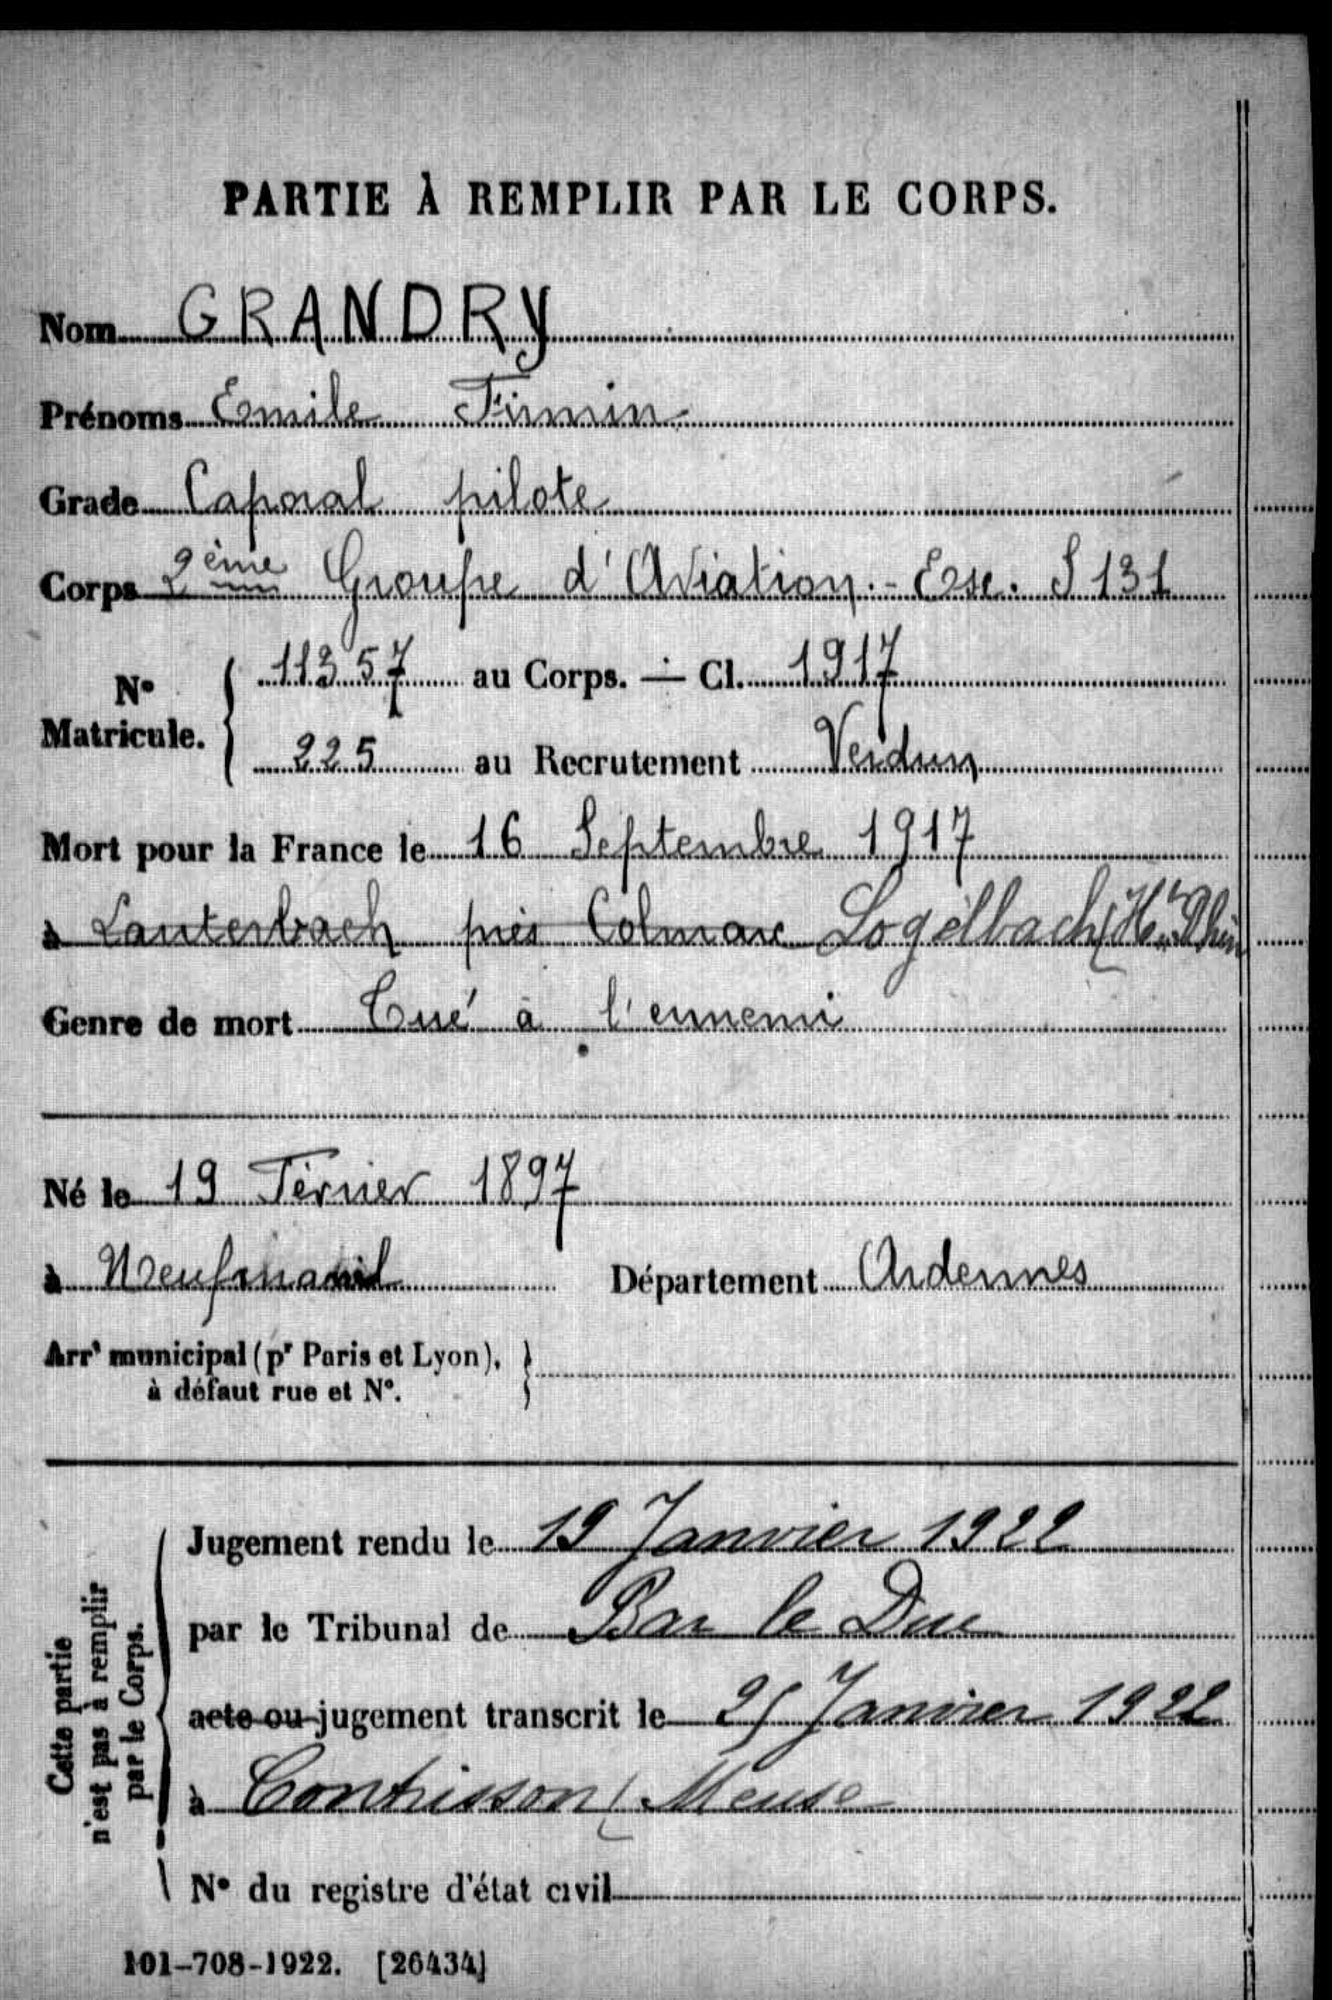 PARTIE À REMPLIR PAR LE CORPS.
Nom GRANDRY
Prénoms Emile Firmin
Grade Caporal pilote
Corps 2ème Groupe d'Aviation.- Esc. S 131
N° Matricule. { 11357 au Corps. — Cl. 1917
225 au Recrutement Verdun
Mort pour la France le 16 Septembre 1917
à Lauterbach près Colmar Logelbach (Ht Rhin
Genre de mort Tué à l'ennemi
Né le 19 Février 1897
à Neufmanil Département Ardennes
Arrt municipal (pr Paris et Lyon), }
à défaut rue et N°.
Cette partie
n'est pas à remplir
par le Corps.
Jugement rendu le 19 Janvier 1922
par le Tribunal de Bar le Duc
acte ou jugement transcrit le 25 Janvier 1922
à Contrisson (Meuse
N° du registre d'état civil
101-708-1922. [26434]